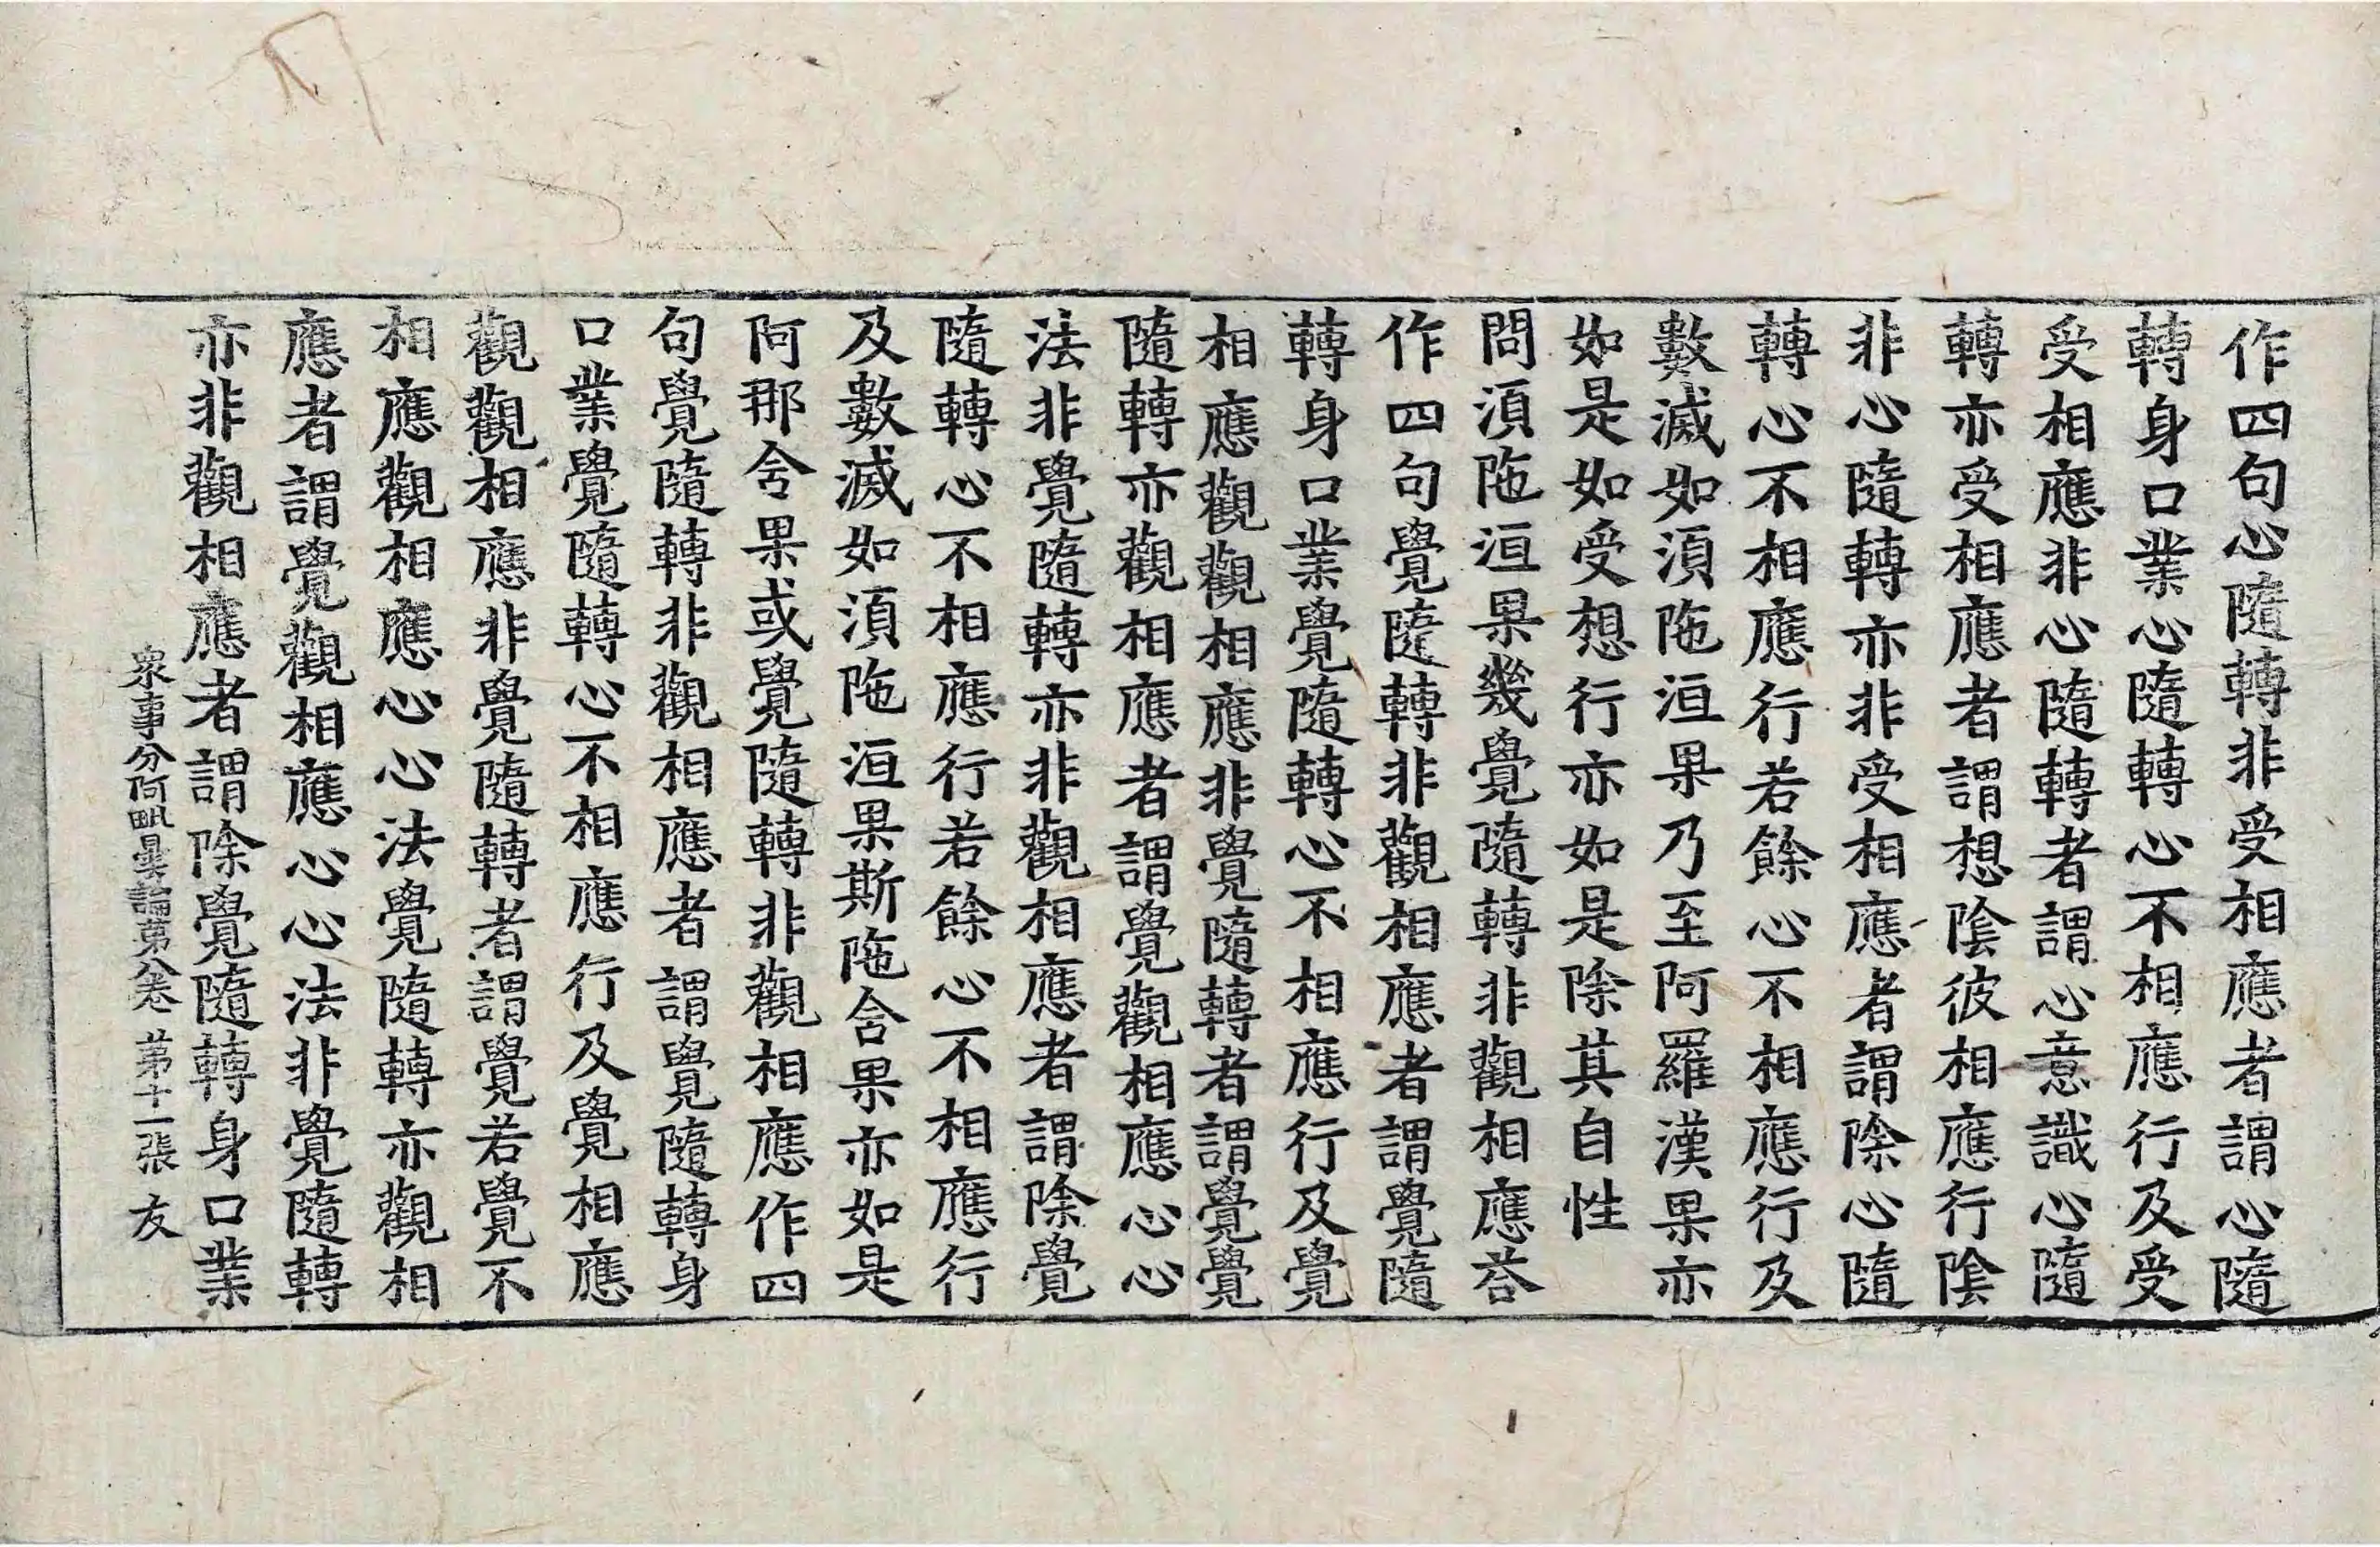 作四句心隨轉非受相應者謂心隨
轉身口業心隨轉心不相應行及受
受相應非心隨轉者謂心意識心隨
轉亦受相應者謂想陰彼相應行陰
非心隨轉亦非受相應者謂除心隨
轉心不相應行若餘心不相應行及
數滅如湏陁洹果乃至阿羅漢果亦
如是如受想行亦如是除其自性
問湏陁洹果幾覺隨轉非觀相應荅
作四句覺隨轉非觀相應者謂覺隨
轉身口業覺隨轉心不相應行及覺
相應觀觀相應非覺隨轉者謂覺覺
隨轉亦觀相應者謂覺觀相應心心
法非覺隨轉亦非觀相應者謂除覺
隨轉心不相應行若餘心不相應行
及數滅如湏陁洹果斯陁含果亦如是
阿那含果或覺隨轉非觀相應作四
句覺隨轉非觀相應者謂覺隨轉身
口業覺隨轉心不相應行及覺相應
觀觀相應非覺隨轉者謂覺若覺不
相應觀相應心心法覺隨轉亦觀相
應者謂覺觀相應心心法非覺隨轉
亦非觀相應者謂除覺隨轉身口業
衆事分阿毗曇論第八卷 第十一張 友